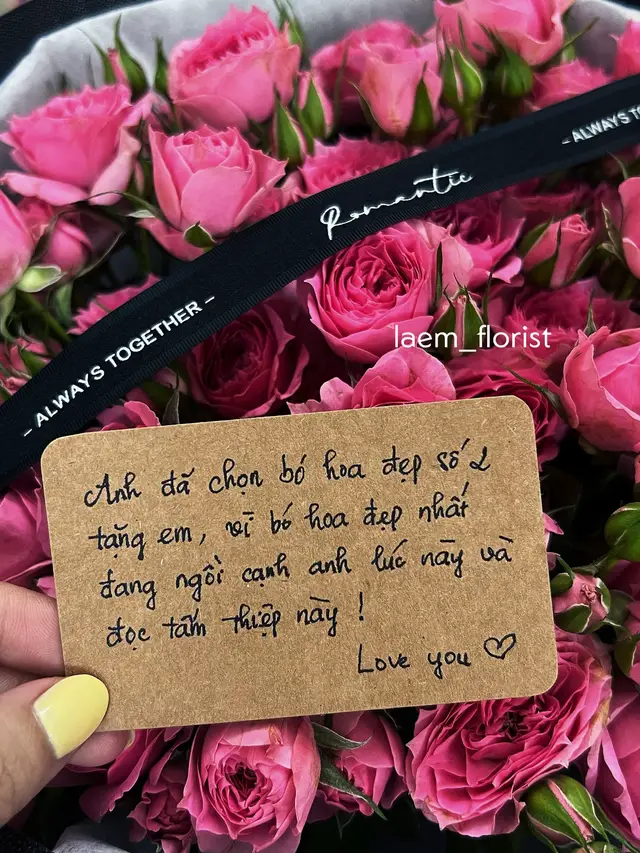 - ALWAYS TO
Romantic
- ALWAYS TOGETHER -
laem_florist
Anh đã chọn bó hoa đẹp số 2
tặng em, vì bó hoa đẹp nhất
đang ngồi cạnh anh lúc này và
đọc tấm thiệp này !
Love you ♡